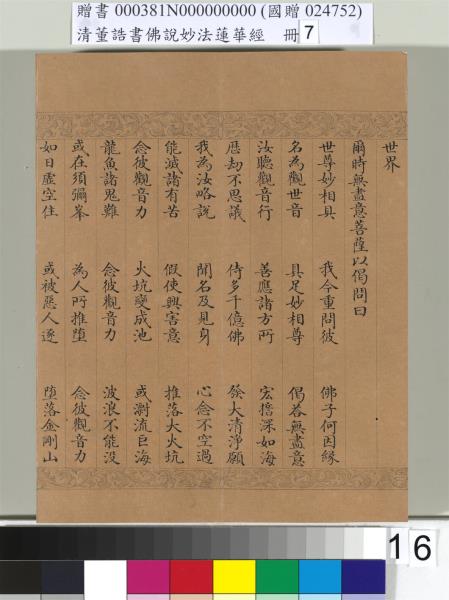 贈書 000381N000000000 (國贈 024752)
清董誥書佛說妙法蓮華經 冊 7
世界
爾時無盡意菩薩以偈問曰
世尊妙相具 我今重問彼 佛子何因緣
名為觀世音 具足妙相尊 偈荅無盡意
汝聽觀音行 善應諸方所 宏擔深如海
歷劫不思議 侍多千億佛 發大清淨願
我為汝略說 聞名及見身 心念不空過
能滅諸有苦 假使興害意 推落大火坑
念彼觀音力 火坑變成池 或漂流巨海
龍魚諸鬼難 念彼觀音力 波浪不能沒
或在須彌峯 為人所推墮 念彼觀音力
如日虛空住 或被惡人逐 墮落金剛山
16